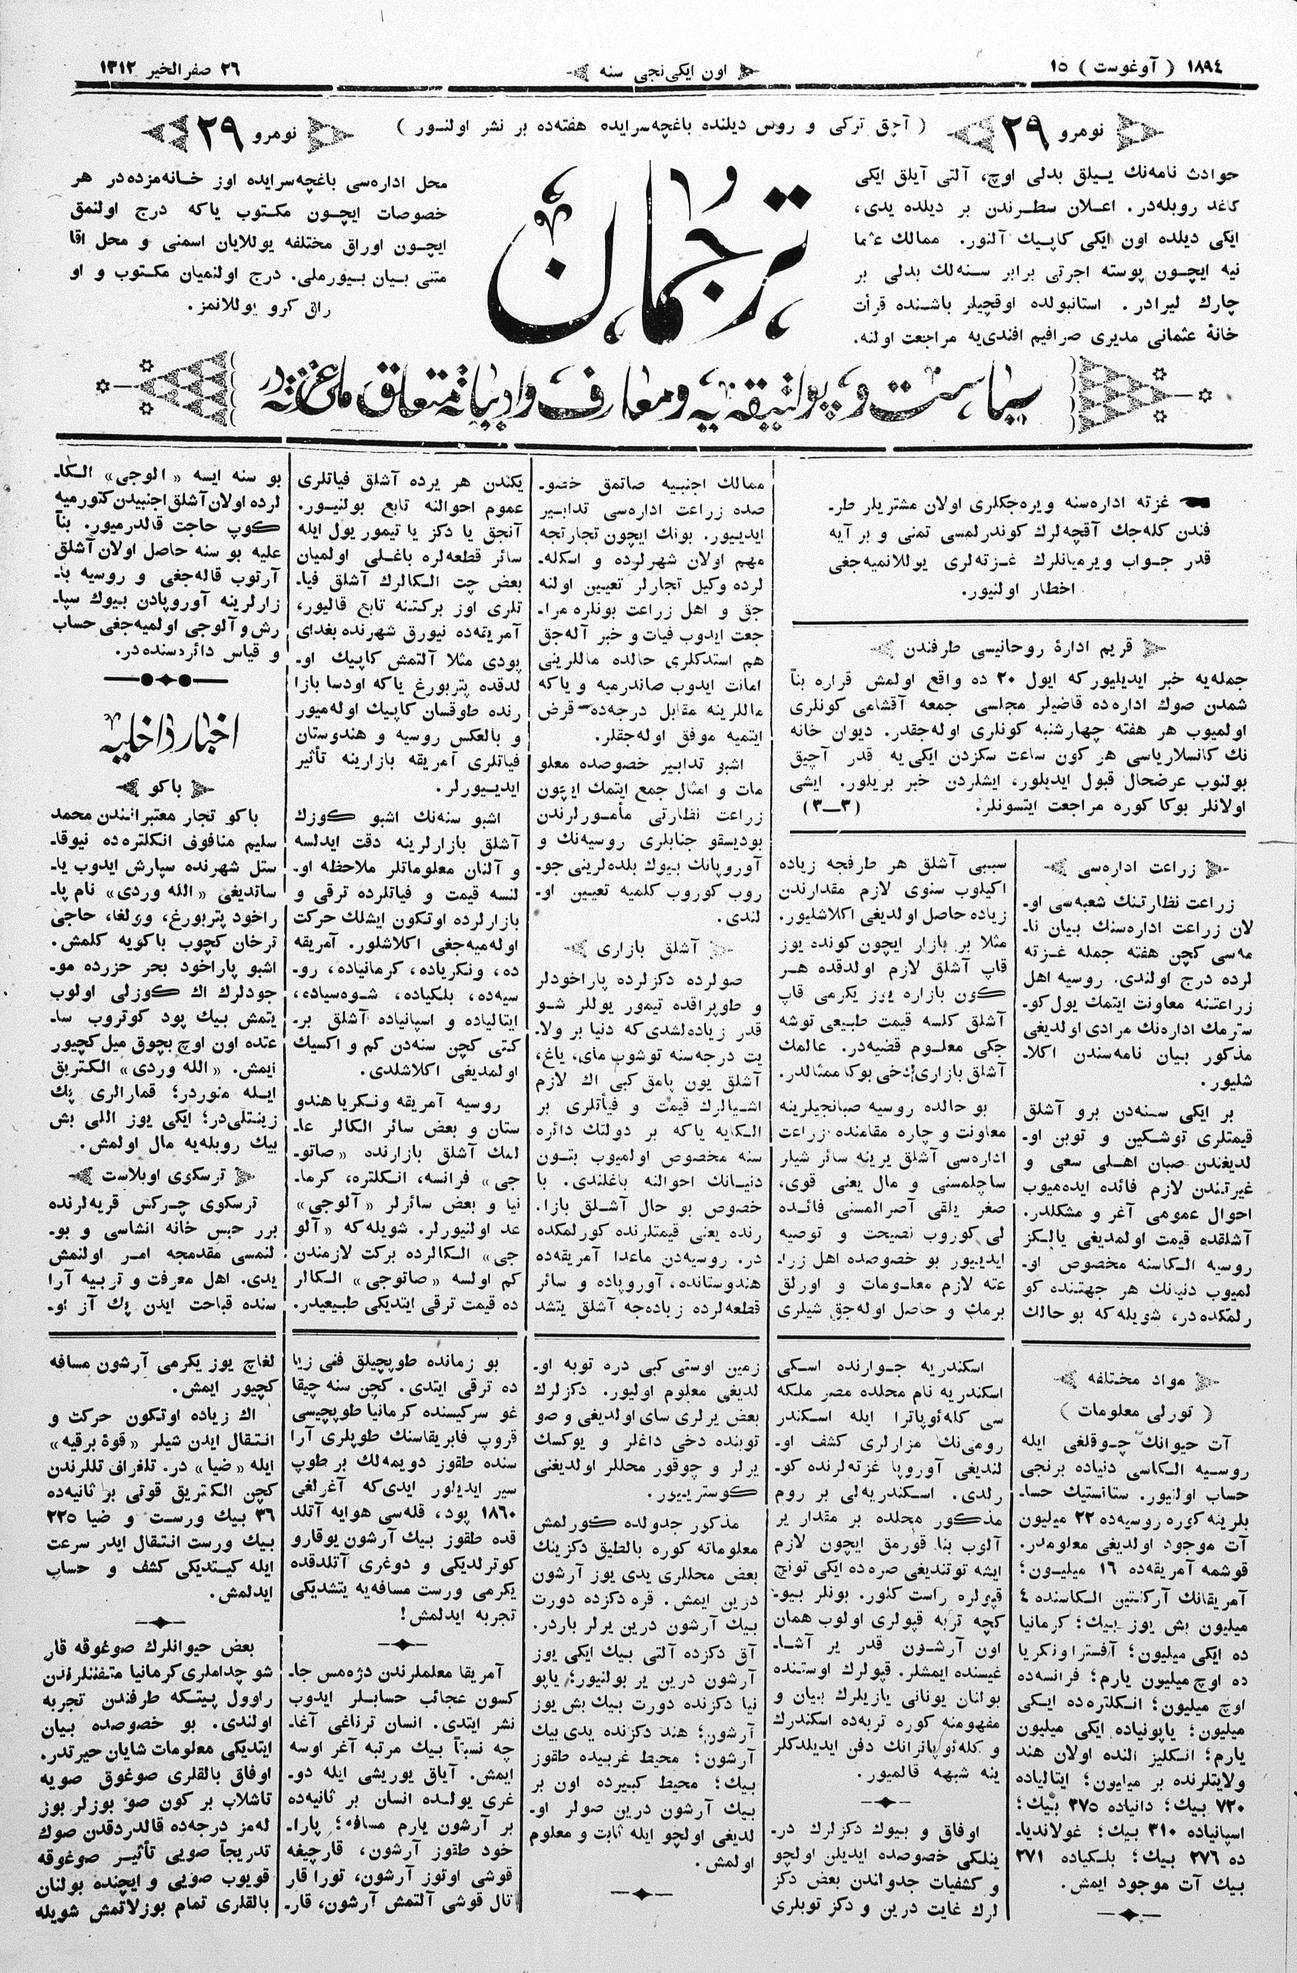 ١٨٩٤ ( آوغوست ) ١٥
اون ایکی نجی سنه
٢٦ صفر الخیر ١٣١٢
نومرو ٢٩
( آچق ترکی و روس دیلنده باغچه‌سرایده هفته‌ده بر نشر اولنور )
نومرو ٢٩
حوادث نامه‌نك ییلق بدلی اوچ، آلتی آیلق ایکی
کاغد روبله‌در. اعلان سطرندن بر دیلده یدی،
ایکی دیلده اون ایکی کاپیك آلنور. ممالك عثما
نیه ایچون پوسته اجرتی برابر سنه‌لك بدلی بر
چارك لیرادر. استانبولده اوقچیلر باشنده قرأت
خانهٔ عثمانی مدیری صرافیم افندی‌یه مراجعت اولنه.
ترجمان
محل اداره‌سی باغچه‌سرایده اوز خانه‌مزده‌در هر
خصوصات ایچون مکتوب یاکه درج اولنمق
ایچون اوراق مختلفه یوللایان اسمنی و محل اقا
متنی بیان بیورملی. درج اولنمیان مکتوب و او
راق کرو یوللانمز.
سیاست و پولتیقه‌یه و معارف و ادبیاته متعلق ملی غزته‌در
غزته اداره‌سنه ویره‌جکلری اولان مشتریلر طر-
فندن کله‌جك آقچه‌لرك کوندرلمسی تمنی و بر آیه
قدر جواب ویرمیانلرك غزته‌لری یوللانمیه‌جغی
اخطار اولنیور.
قریم ادارهٔ روحانیسی طرفندن
جمله‌یه خبر ایدیلیور که ایول ٢٠ ده واقع اولمش قراره بنأ
شمدن صوك اداره‌ده قاضیلر مجلسی جمعه آقشامی کونلری
اولمیوب هر هفته چهارشنبه کونلری اوله‌جقدر. دیوان خانه
نك کانسلاریاسی هر کون ساعت سکزدن ایکی‌یه قدر آچیق
بولنوب عرضحال قبول ایدیلور، ایشلردن خبر بریلور. ایشی
اولانلر بوکا کوره مراجعت ایتسونلر. (٣—٣)
زراعت اداره‌سی
زراعت نظارتنك شعبه‌سی او-
لان زراعت اداره‌سنك بیان نا-
مه‌سی کچن هفته جمله غزته
لرده درج اولندی. روسیه اهل
زراعتنه معاونت ایتمك یول کو-
سترمك اداره‌نك مرادی اولدیغی
مذکور بیان نامه‌سندن اکلا-
شلیور.
بر ایکی سنه‌دن برو آشلق
قیمتلری توشکین و توبن او-
لدیغندن صبان اهلی سعی و
غیرتندن لازم فائده ایده‌میوب
احوال عمومی آغر و مشکلدر.
آشلقده قیمت اولمدیغی یالکز
روسیه الکاسنه مخصوص او-
لمیوب دنیانك هر جهتنده کو
رلمکده‌در، شویله که بو حالك
سببی آشلق هر طرفجه زیاده
اکیلوب سنوی لازم مقدارندن
زیاده حاصل اولدیغی اکلاشلیور.
مثلا بر بازار ایچون کونده یوز
قاپ آشلق لازم اولدقده هر
کون بازاره یوز یکرمی قاپ
آشلق کلسه قیمت طبیعی توشه
جکی معلوم قضیه‌در. عالمك
آشلق بازاری دخی بوکا ممثالدر.
بو حالده روسیه صبانجیلرینه
معاونت و چاره مقامنده زراعت
اداره‌سی آشلق یرینه سائر شیلر
ساچلمسنی و مال یعنی قوی،
صغر یلقی آصرالمسنی فائده
لی کوروب نصیحت و توصیه
ایدییور بو خصوصده اهل زرا-
عته لازم معلومات و اورلق
برمك و حاصل اوله‌جق شیلری
ممالك اجنبیه صاتمق خصو-
صده زراعت اداره‌سی تدابیر
ایدییور. بونك ایچون تجارتجه
مهم اولان شهرلرده و اسکله-
لرده وکیل تجارلر تعیین اولنه
جق و اهل زراعت بونلره مرا-
جعت ایدوب فیات و خبر آله‌جق
هم استدکلری حالده ماللرینی
امانت ایدوب صاندرمیه و یاکه
ماللرینه مقابل درجه‌ده قرض
ایتمیه موفق اوله‌جقلر.
اشبو تدابیر خصوصده معلو
مات و امثال جمع ایتمك ایچون
زراعت نظارتی مأمورلرندن
بودیسقو جنابلری روسیه‌نك و
آوروپانك بیوك بلده‌لرینی جو-
روب کوروب کلمیه تعیین او-
لندی.
آشلق بازاری
صولرده دکزلرده پاراخودلر
و طوپراقده تیمور یوللر شو
قدر زیاده‌لشدی که دنیا بر ولا-
یت درجه‌سنه توشوب مای، یاغ،
آشلق یون پامق کبی اك لازم
اشیالرك قیمت و فیأتلری بر
الکایه یاکه بر دولتك دائره
سنه مخصوص اولمیوب بتون
دنیانك احوالنه باغلندی. با
خصوص بو حال آشلق بازا.
رنده یعنی قیمتلرنده کورلمکده
در. روسیه‌دن ماعدا آمریقه‌ده
هندوستانده، آوروپاده و سائر
قطعه‌لرده زیاده‌جه آشلق یتشد
یکندن هر یرده آشلق فیاتلری
عموم احوالنه تابع بولنیور.
آنجق یا دکز یا تیمور یول ایله
سائر قطعه‌لره باغلی اولمیان
بعض چت الکالرك آشلق فیا-
تلری اوز برکتنه تابع قالیور،
آمریقه‌ده نیورق شهرنده بغدای
پودی مثلا آلتمش کاپیك او-
لدقده پتربورغ یاکه اودسا بازا
رنده طوقسان کاپیك اوله‌میور
و بالعکس روسیه و هندوستان
فیاتلری آمریقه بازارینه تأثیر
ایدییورلر.
اشبو سنه‌نك اشبو کوزك
آشلق بازارلرینه دقت ایدلسه
و آلنان معلوماتلر ملاحظه او-
لنسه قیمت و فیاتلرده ترقی و
بازارلرده اوتکون ایشلك حرکت
اوله‌میه‌جغی اکلاشلور. آمریقه
ده، ونکریاده، کرمانیاده، رو-
سیه‌ده، بلکیاده، شوه‌سیاده،
ایتالیاده و اسپانیاده آشلق بر-
کتی کچن سنه‌دن کم و اکسیك
اولمدیغی اکلاشلدی.
روسیه آمریقه ونکریا هندو
ستان و بعض سائر الکالر عا-
لمك آشلق بازارنده «صاتو-
جی» فرانسه، انکلتره، کرما-
نیا و بعض سائرلر «آلوجی»
عد اولنیورلر. شویله که «آلو
جی» الکالرده برکت لازمندن
کم اولسه «صاتوجی» الکالر
ده قیمت ترقی ایتدیکی طبیعیدر.
بو سنه ایسه «الوجی» الکا-
لرده اولان آشلق اجنبیدن کتورمیه
کوپ حاجت قالدرمیور. بنأ
علیه بو سنه حاصل اولان آشلق
آرتوب قاله‌جغی و روسیه با-
زارلرینه آوروپادن بیوك سپا-
رش و آلوجی اولمیه‌جغی حساب
و قیاس دائره‌سنده‌در.
اخبار داخلیه
باکو
باکو تجار معتبرانندن محمد
سلیم منافوف انکلتره‌ده نیوقا-
ستل شهرنده سپارش ایدوب یا-
ساتدیغی «الله وردی» نام پا-
راخود پتربورغ، وولغا، حاجی
ترخان کچوب باکویه کلمش.
اشبو پاراخود بحر حزرده مو-
جودلرك اك کوزلی اولوب
یتمش بیك پود کوتروب سا-
عتده اون اوچ بچوق میل کچیور
ایمش. «الله وردی» الکتریق
ایله منوردر؛ قمارالری پك
زینتلی‌در؛ ایکی یوز اللی بش
بیك روبله‌یه مال اولمش.
ترسکوی اوبلاست
ترسکوی چرکس قریه‌لرنده
برر حبس خانه انشاسی و بو-
لنمسی مقدمجه امر اولنمش
یدی. اهل معرفت و تربیه آرا
سنده قباحت ایدن پك آز او-
مواد مختلفه
( تورلی معلومات )
آت حیوانك چوقلغی ایله
روسیه الکاسی دنیاده برنجی
حساب اولنیور. ستاتستیك حسا-
بلرینه کوره روسیه‌ده ٢٢ میلیون
آت موجود اولدیغی معلومدر.
قوشمه آمریقه‌ده ١٦ میلیون؛
آمریقانك آرکنتین الکاسنده ٤
میلیون بش یوز بیك؛ کرمانیا
ده ایکی میلیون؛ آفستراونکریا
ده اوچ میلیون یارم؛ فرانسه‌ده
اوچ میلیون؛ انکلتره‌ده ایکی
میلیون؛ یاپونیاده ایکی میلیون
یارم؛ انکلیز النده اولان هند
ولایتلرنده بر میلیون؛ ایتالیاده
٧٢٠ بیك؛ دانیاده ٣٧٥ بیك؛
اسپانیاده ٣١٠ بیك؛ غولاندیا-
ده ٢٧٦ بیك؛ بلکیاده ٢٧١
بیك آت موجود ایمش.
اسکندریه جوارنده اسکی
اسکندریه نام محلده مصر ملکه
سی کله‌ئوپاترا ایله اسکندر
رومی‌نك مزارلری کشف او-
لندیغی آوروپا غزته‌لرنده کو-
رلدی. اسکندریه‌لی بر روم
مذکور محلده بر مقدار یر
آلوب بنا قورمق ایچون لازم
ایشه توتندیغی صره‌ده ایکی تونچ
قپولره راست کلنور. بونلر بیو-
کچه تربه قپولری اولوب همان
اون آرشون قدر یر آشا-
غیسنده ایمشلر. قپولرك اوستنده
بولنان یونانی یازیلرك بیان و
مفهومنه کوره تربه‌ده اسکندرك
و کله‌ئوپاترانك دفن ایدیلدکلر
ینه شبهه قالمیور.
اوفاق و بیوك دکزلرك در-
ینلکی خصوصده ایدیلن اولچو
و کشفیات جدواندن بعض دکز
لرك غایت درین و دکز توبلری
زمین اوستی کبی دره توبه او-
لدیغی معلوم اولیور. دکزلرك
بعض یرلری سای اولدیغی و صو
توبنده دخی داغلر و یوکسك
یرلر و چوقور محللر اولدیغنی
کوستریییور.
مذکور جدولده کورلمش
معلوماته کوره بالطیق دکزینك
بعض محللری یدی یوز آرشون
درین ایمش. قره دکزده دورت
بیك آرشون درین یرلر باردر.
آق دکزده آلتی بیك ایکی یوز
آرشون درین یر بولنیور؛ یاپو
نیا دکزنده دورت بیك بش یوز
آرشون؛ هند دکزنده یدی بیك
آرشون؛ محیط غربیده طقوز
بیك؛ محیط کبیرده اون بر
بیك آرشون درین صولر او-
لدیغی اولچو ایله ثابت و معلوم
اولمش.
بو زمانده طوپچیلق فنی زیا
ده ترقی ایتدی. کچن سنه چیقا
غو سرکیسنده کرمانیا طوپچیسی
قروپ فابریقاسنك طوپلری آرا
سنده طقوز دویمه‌لك بر طوپ
سیر ایدیلور ایدی که آغرلغی
١٨٦٠ پود، قله‌سی هوایه آتلد
قده طقوز بیك آرشون یوقارو
کوترلدیکی و دوغری آتلدقده
یکرمی ورست مسافه‌یه یتشدیکی
تجربه ایدلمش!
آمریقا معلملرندن دژه‌مس جا-
کسون عجائب حسابلر ایدوب
نشر ایتدی. انسان ترناغی آغا-
چه نسبتأ بیك مرتبه آغر اوسه
ایمش. آیاق یوریشی ایله دو-
غری یولده انسان بر ثانیه‌ده
بر آرشون یارم مسافه؛ پارا-
خود طقوز آرشون، قارچیغه
قوشی اوتوز آرشون، تورا قار
تال قوشی آلتمش آرشون، قار-
لغاچ یوز یکرمی آرشون مسافه
کچیور ایمش.
اك زیاده اوتکون حرکت و
انتقال ایدن شیلر «قوهٔ برقیه»
ایله «ضیا» در. تلغراف تللرندن
کچن الکتریق قوتی بر ثانیه‌ده
٣٦ بیك ورست و ضیا ٢٢٥
بیك ورست انتقال ایدر سرعت
ایله کیتدیکی کشف و حساب
ایدلمش.
بعض حیوانلرك صوغوقه قار
شو چداملری کرمانیا متفننلرندن
راوول پیتکه طرفندن تجربه
اولندی. بو خصوصده بیان
ایتدیکی معلومات شایان حیرتدر.
اوفاق بالقلری صوغوق صویه
تاشلاب بر کون صو بوزلر بوز
له‌مز درجه‌ده قالدردقدن صوك
تدریجأ صویی تأثیر صوغوقه
قویوب صویی و ایچنده بولنان
بالقلری تمام بوزلاتمش شویله